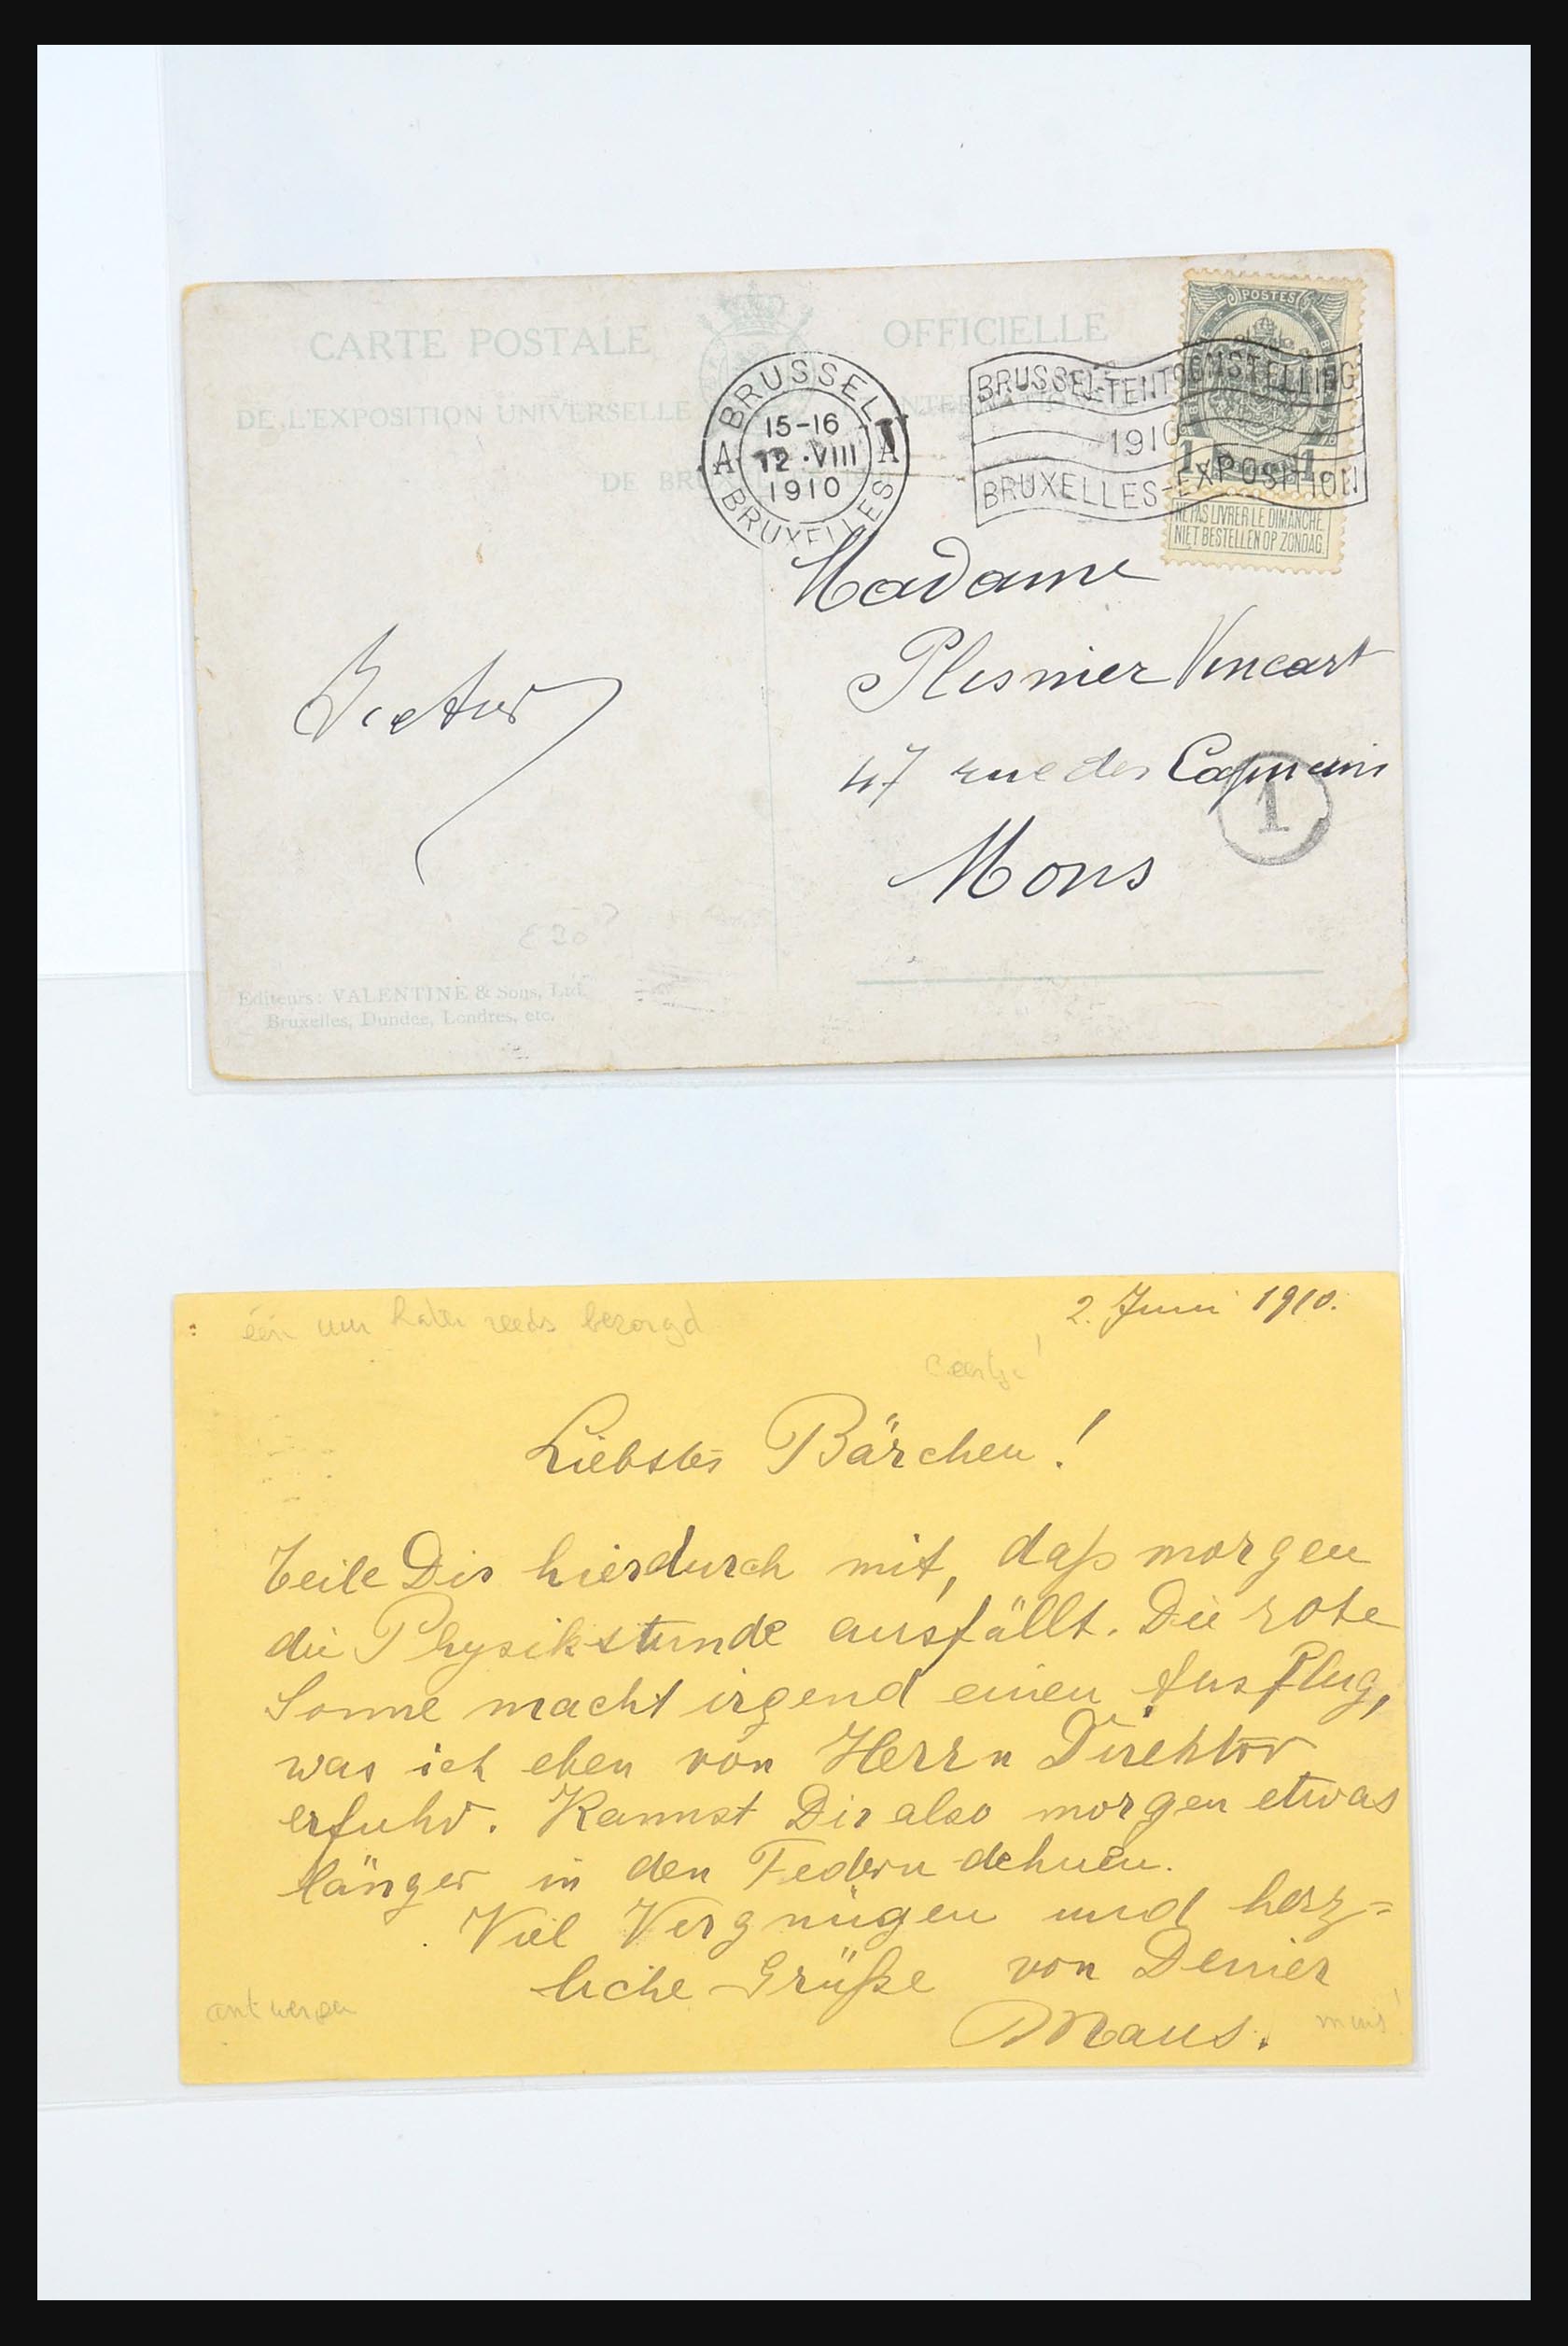 CARTE POSTALE OFFICIELLE
DE L'EXPOSITION UNIVERSELLE INTERNATIONALE
DE BRUXELLES
BRUSSEL
15-16
12 · VIII
1910
A A
BRUXELLES
BRUSSEL-TENTOONSTELLING
1910
BRUXELLES-EXPOSITION
POSTES
1 1
NE PAS LIVRER LE DIMANCHE
NIET BESTELLEN OP ZONDAG
Madame
Plisnier Vincart
47 rue des Capucins
Mons
1
Victor
E 20
Editeurs: VALENTINE & Sons, Ltd.
Bruxelles, Dundee, Londres, etc.
één uur later reeds bezorgd
2. Juni 1910.
Liebstes Bärchen!
Teile Dir hierdurch mit, daß morgen
die Physikstunde ausfällt. Die rote
Sonne macht irgend einen Ausflug,
was ich eben von Herrn Direktor
erfuhr. Kannst Dir also morgen etwas
länger in den Federn dehnen.
Viel Vergnügen und herz=
liche Grüße von Deiner
Maus.
antwerpen
muis!